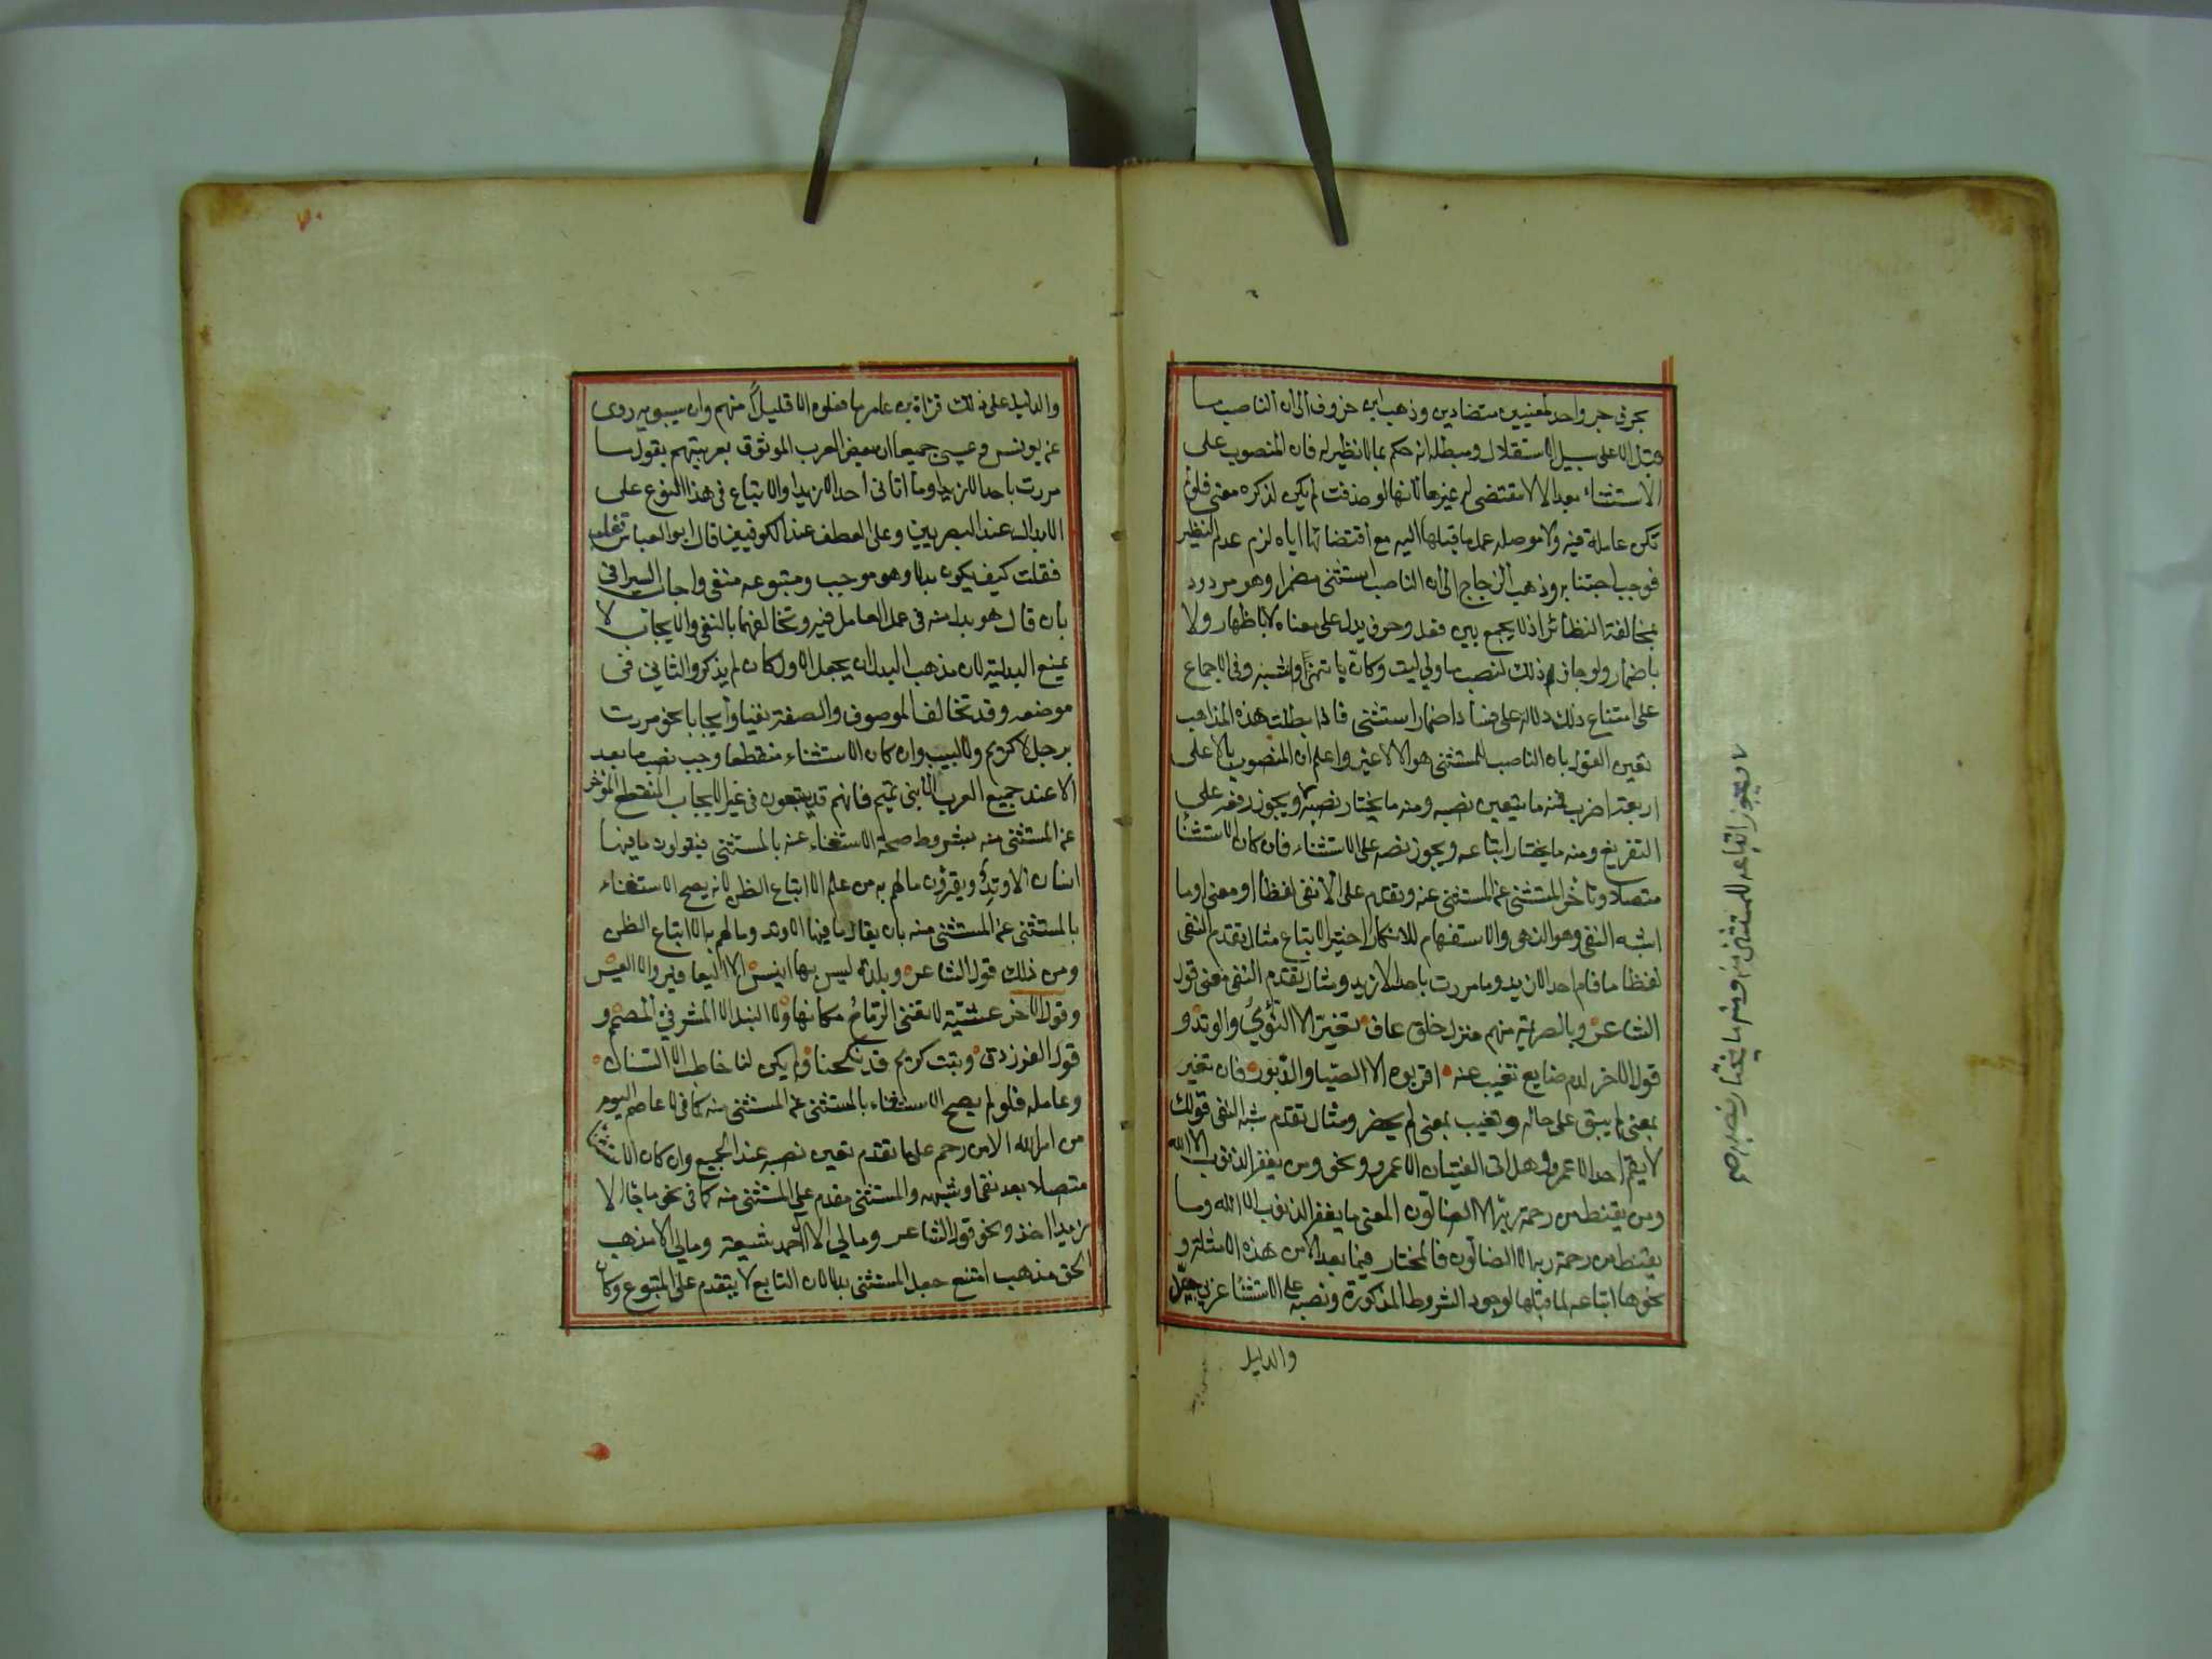 بحرف جر واحد لمعنيين متضادين وذهب ابن خروف الى ان الناصب ما
قبل الا على سبيل الاستقلال ويبطله انه حكم بما لا نظير له فان المنصوب على
الاستثناء بعد الا لا مقتضى له غيرها لانها لو حذفت لم يكن لذكره معنى فلو لم
تكن عاملة فيه ولا موصلة عمل ما قبلها اليه مع اقتضائها اياه لزم عدم النظير
فوجب اجتنابه وذهب الزجاج الى ان الناصب استثنى مضمرا وهو مردود
بمخالفة النظائر اذ لا يجمع بين فعل وحرف يدل على معناه لا باظهار ولا
باضمار ولو جاز ذلك لنصب ما ولي ليت وكان باتمنى واشبه وفي الاجماع
على امتناع ذلك دلالة على فساد اضمار استثنى فاذا بطلت هذه المذاهب
تعين القول بان الناصب للمستثنى هو الا لا غير واعلم ان المنصوب بالا على
اربعة اضرب فمنه ما يتعين نصبه ومنه ما يختار نصبه ويجوز رفعه على
التفريغ ومنه ما يختار اتباعه ويجوز نصبه على الاستثناء فان كان الاستثنا
متصلا وتأخر المستثنى عن المستثنى عنه وتقدم على الا نفي لفظا او معنى او ما
اشبه النفي وهو النهي والاستفهام للانكار اختير الاتباع مثال تقدم النفي
لفظا ما قام احد الا زيد وما مررت باحد الا زيد ومثال تقدم النفي معنى قول
الشاعر وبالصريمة منهم منزل خلق عاف تغير الا النؤي والوتد و
قول الاخر لدم ضايع تغيب عنه اقربوه الا الصبا والدبور فان تغير
بمعنى لم يبق على حاله وتغيب بمعنى لم يحضر ومثال تقدم شبه النفي قولك
لا يقم احد الا عمرو وهل اتى الفتيان الا عمرو ونحو ومن يغفر الذنوب الا الله
ومن يقنط من رحمة ربه الا الضالون المعنى ما يغفر الذنوب الا الله وما
يقنط من رحمة ربه الا الضالون فالمختار فيما بعد الا من هذه الامثلة و
نحوها اتباعه لما قبلها لوجود الشروط المذكورة ونصبه على الاستثنا عربي جيد
والدليل
ويجوز اتباعه للمستثنى منه ومنه ما يختار نصبه صح
٧٠
والدليل على ذلك قراة بن عامر ما فعلوه الا قليلا منهم وان سيبويه روى
عن يونس وعيسى جميعا ان بعض العرب الموثوق بعربيتهم يقول ما
مررت باحد الا زيدا وما اتاني احد الا زيدا والاتباع في هذا النوع على
الابدال عند البصريين وعلى العطف عند الكوفيين قال ابو العباس ثعلب
فقلت كيف يكون بدلا وهو موجب ومتبوعه منفي واجاب السيرافي
بان قال هو بدل منه في عمل العامل فيه وتخالفهما بالنفي والايجاب لا
يمنع البدلية لان مذهب البدل ان يجعل الاول كان لم يذكر والثاني في
موضعه وقد تخالف الموصوف والصفة نفيا وايجابا نحو مررت
برجل لا كريم ولا لبيب وان كان الاستثناء منقطعا وجب نصب ما بعد
الا عند جميع العرب الا بني تميم فانهم قد يتبعون في غير الايجاب المنقطع المؤخر
عن المستثنى منه بشروط صحة الاستغناء عنه بالمستثنى فيقولون ما فيها
انسان الا وتد ويقرؤن ما لهم به من علم الا اتباع الظن لانه يصح الاستغناء
بالمستثنى عن المستثنى منه بان يقال ما فيها الا وتد وما لهم به الا اتباع الظن
ومن ذلك قول الشاعر وبلدة ليس بها انيس الا اليعافير والا العيس
وقول الاخر عشية لا تغنى الرماح مكانها ولا النبل الا المشرفي المصمم و
قول الفرزدق وبنت كريم قد نكحنا ولم يكن لنا خاطب الا السنان
وعامله فلو لم يصح الاستغناء بالمستثنى عن المستثنى منه كما في لا عاصم اليوم
من امر الله الا من رحم على ما تقدم تعين نصبه عند الجميع وان كان الاستثنا
متصلا بعد نفي او شبهه والمستثنى مقدم على المستثنى منه كما في نحو ما جا الا
زيدا احد ونحو قول الشاعر وما لي الا ال احمد شيعة وما لي الا مذهب
الحق مذهب امتنع جعل المستثنى بدلا لان التابع لا يتقدم على المتبوع وكان